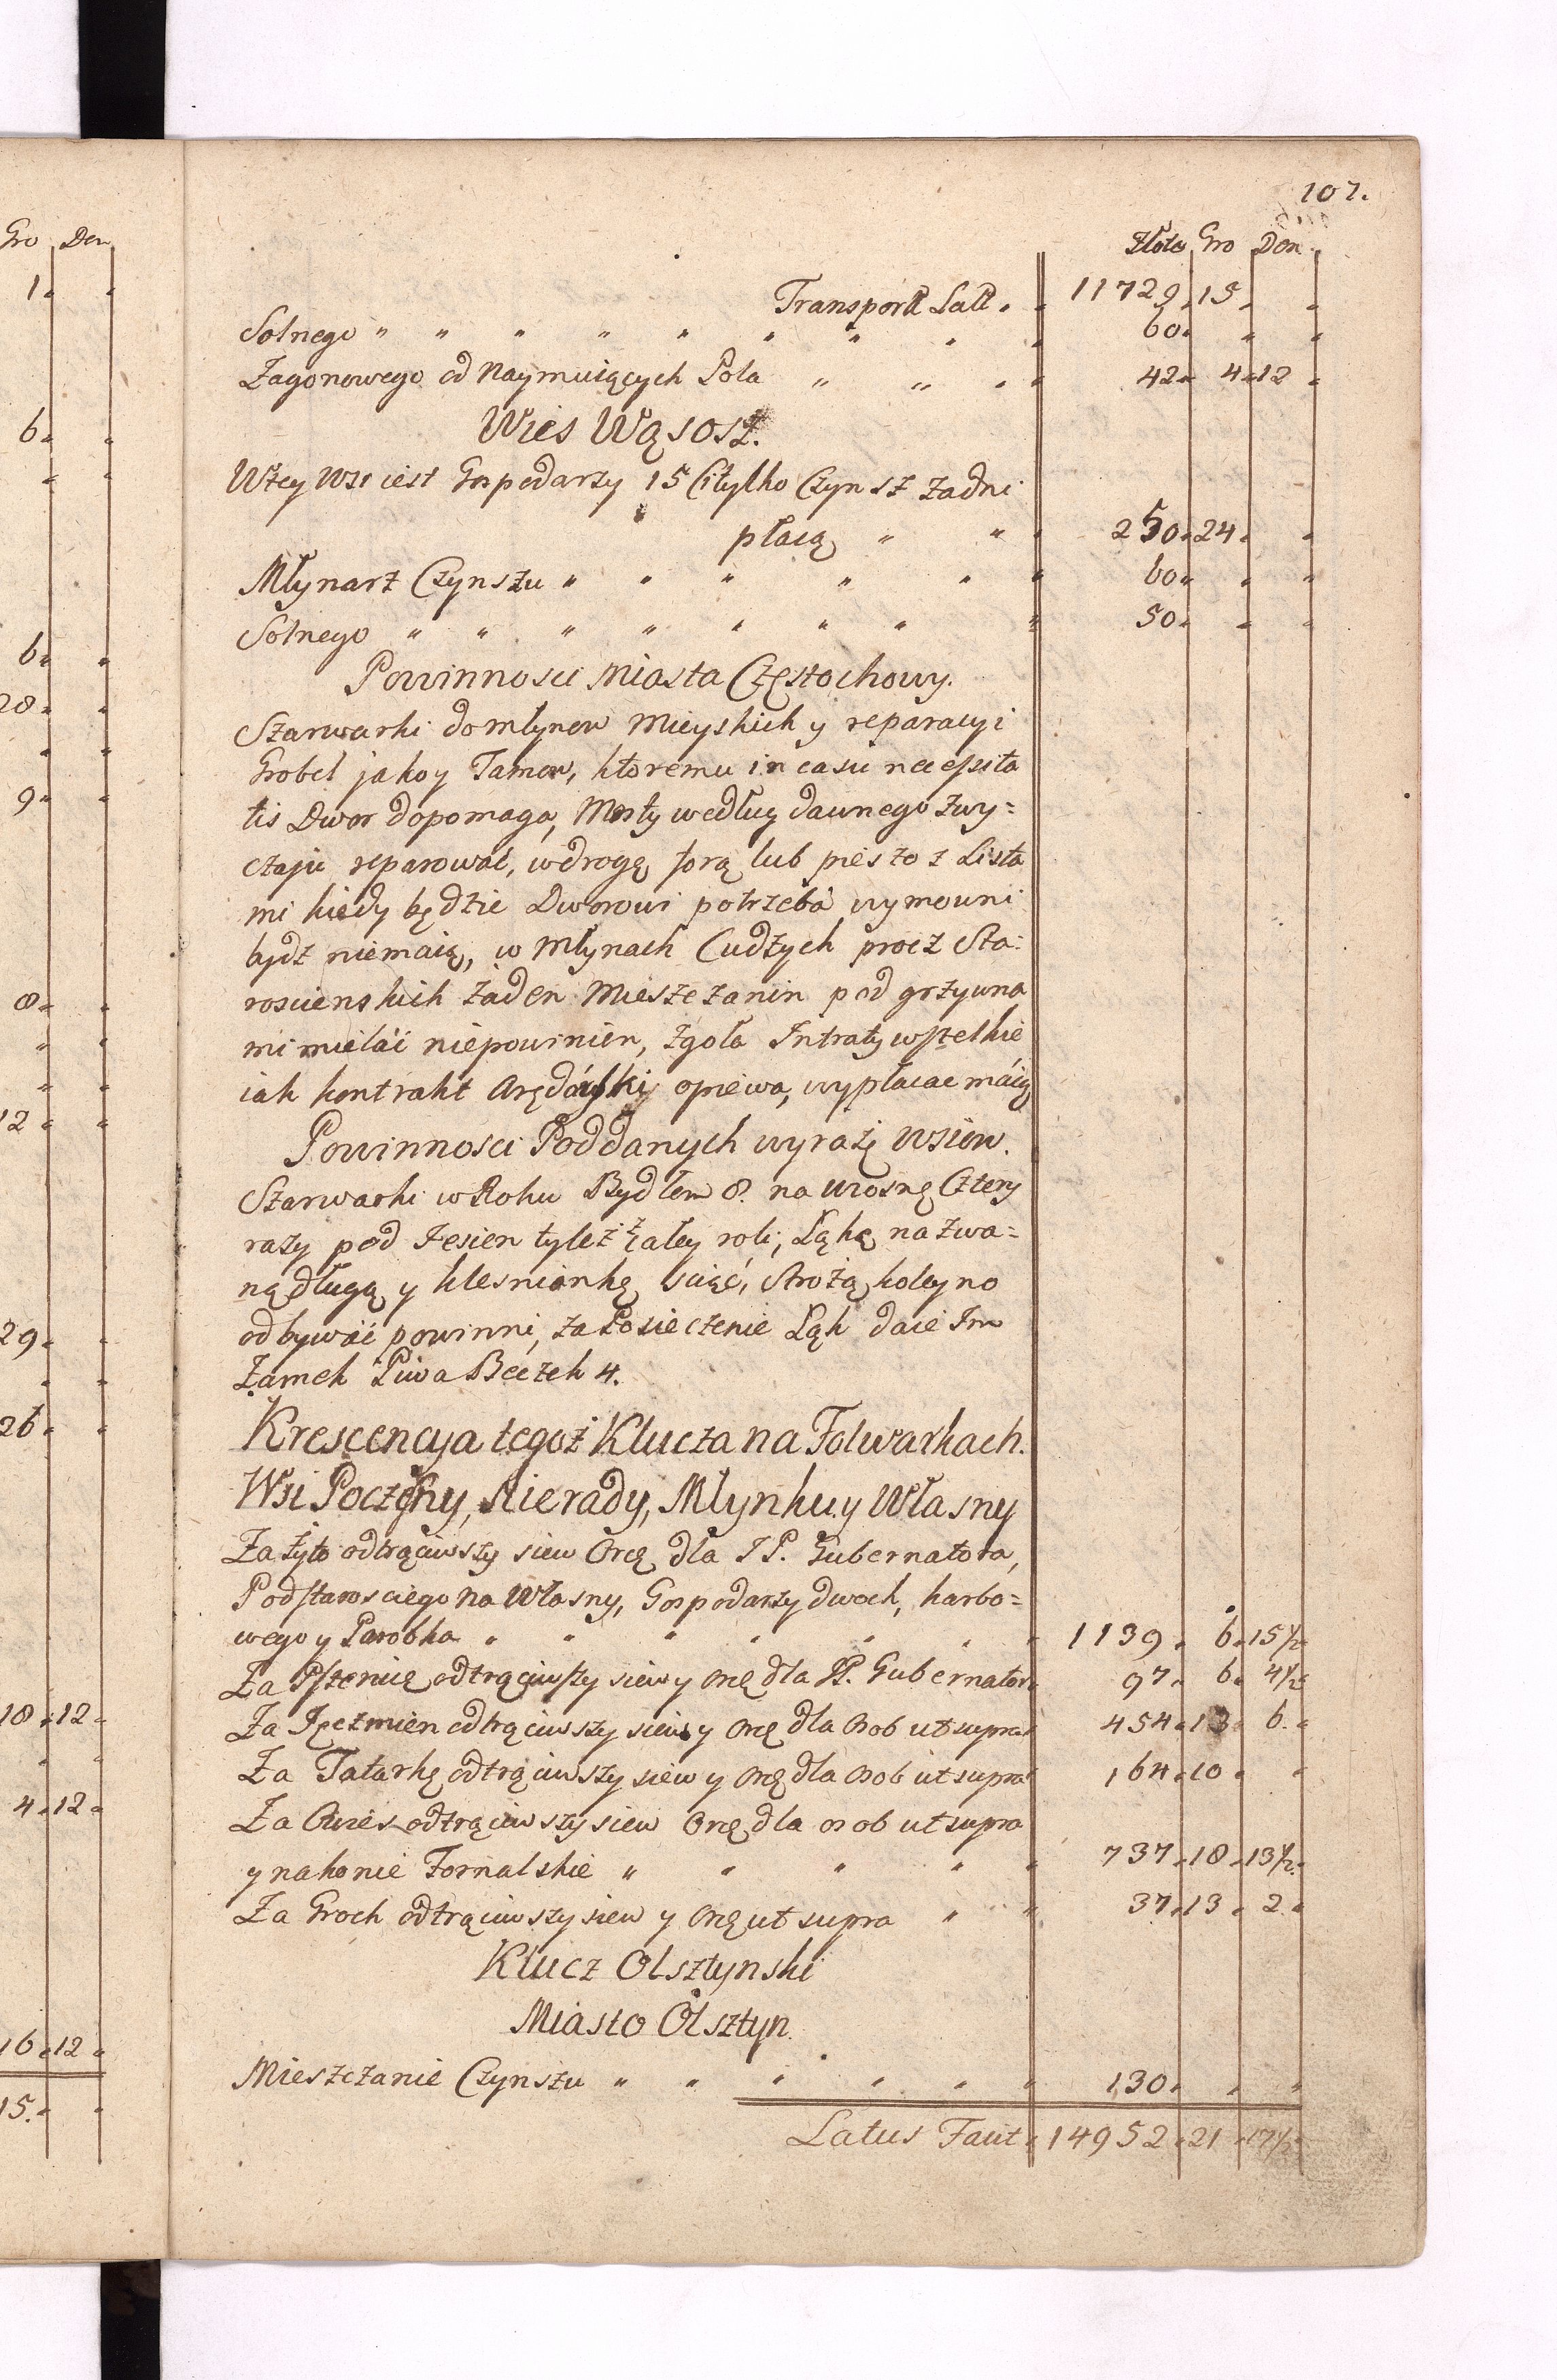 107.
Gro Den
Złote Gro Den
1
Transport Lat. 11729 15
Solnego " " " " " " " 60
Zagonowego od Naymuiących Pola " " 42 4 12
6
Wies Wąsosz.
Wtey Wsi iest Gospodarzy 15 Ci tylko Czynsz zadni
płacą " " 250 24
Młynarz Czynszu " " " " " 60
Solnego " " " " " " " 50
6
Powinnosci Miasta Częstochowy.
28
Szarwarki do młynow Mieyskich y reparacyi
Grobel jako y Tamow, ktoremu in casu necessita
9
tis Dwor dopomaga, Mosty według dawnego zwy=
czaju reparować, w drogę forą lub pieszo z Lista
mi kiedy będzie Dworowi potrzeba wymowni
bydź niemaią, w Młynach Cudzych procz Sta=
8
roscienskich żaden Mieszczanin pod grzywna
mi mielać niepowinien, zgoła Intraty wszelkie
iak kontrakt Arędowny opiewa, wypłacać maią
12
Powinnosci Poddanych wyrażę Wsiow.
Szarwarki w Roku Bydłem 8. na wiosnę Cztery
razy pod Jesien tyleż z całey roli, Łąkę nazwa=
ną długą y klesniankę siąć, Strożą koleyno
29
odbywać powinni, za Posieczenie Łąk daie Im
Zamek Piwa Beczek 4.
26
Krescencya tegoż Klucza na Folwarkach.
Wsi Poczesny, Nierady, Młynku y Własny
Za żyto odtrąciwszy siew Orę dla JP. Gubernatora,
Podstarosciego na Własny, Gospodarzy dwoch, karbo=
wego y Parobka " " " " " 1139 6 15½
Za Pszenicę odtrąciwszy siew y Orę dla JP. Gubernatora 97 6 4½
18 12
Za Jęczmien odtrąciwszy siew y Orę dla Osob ut supra 454 13 6
Za Tatarkę odtrąciwszy siew y Orę dla Osob ut supra 164 10
4 12
Za Owies odtrąciwszy siew Orę dla osob ut supra
y na konie Fornalskie " " " " 737 18 13½
Za Groch odtrąciwszy siew y Orę ut supra " " 37 13 2
Klucz Olsztynski
Miasto Olsztyn.
16 12
Mieszczanie Czynszu " " " " " 130
15.
Latus Facit 14952 21 17½